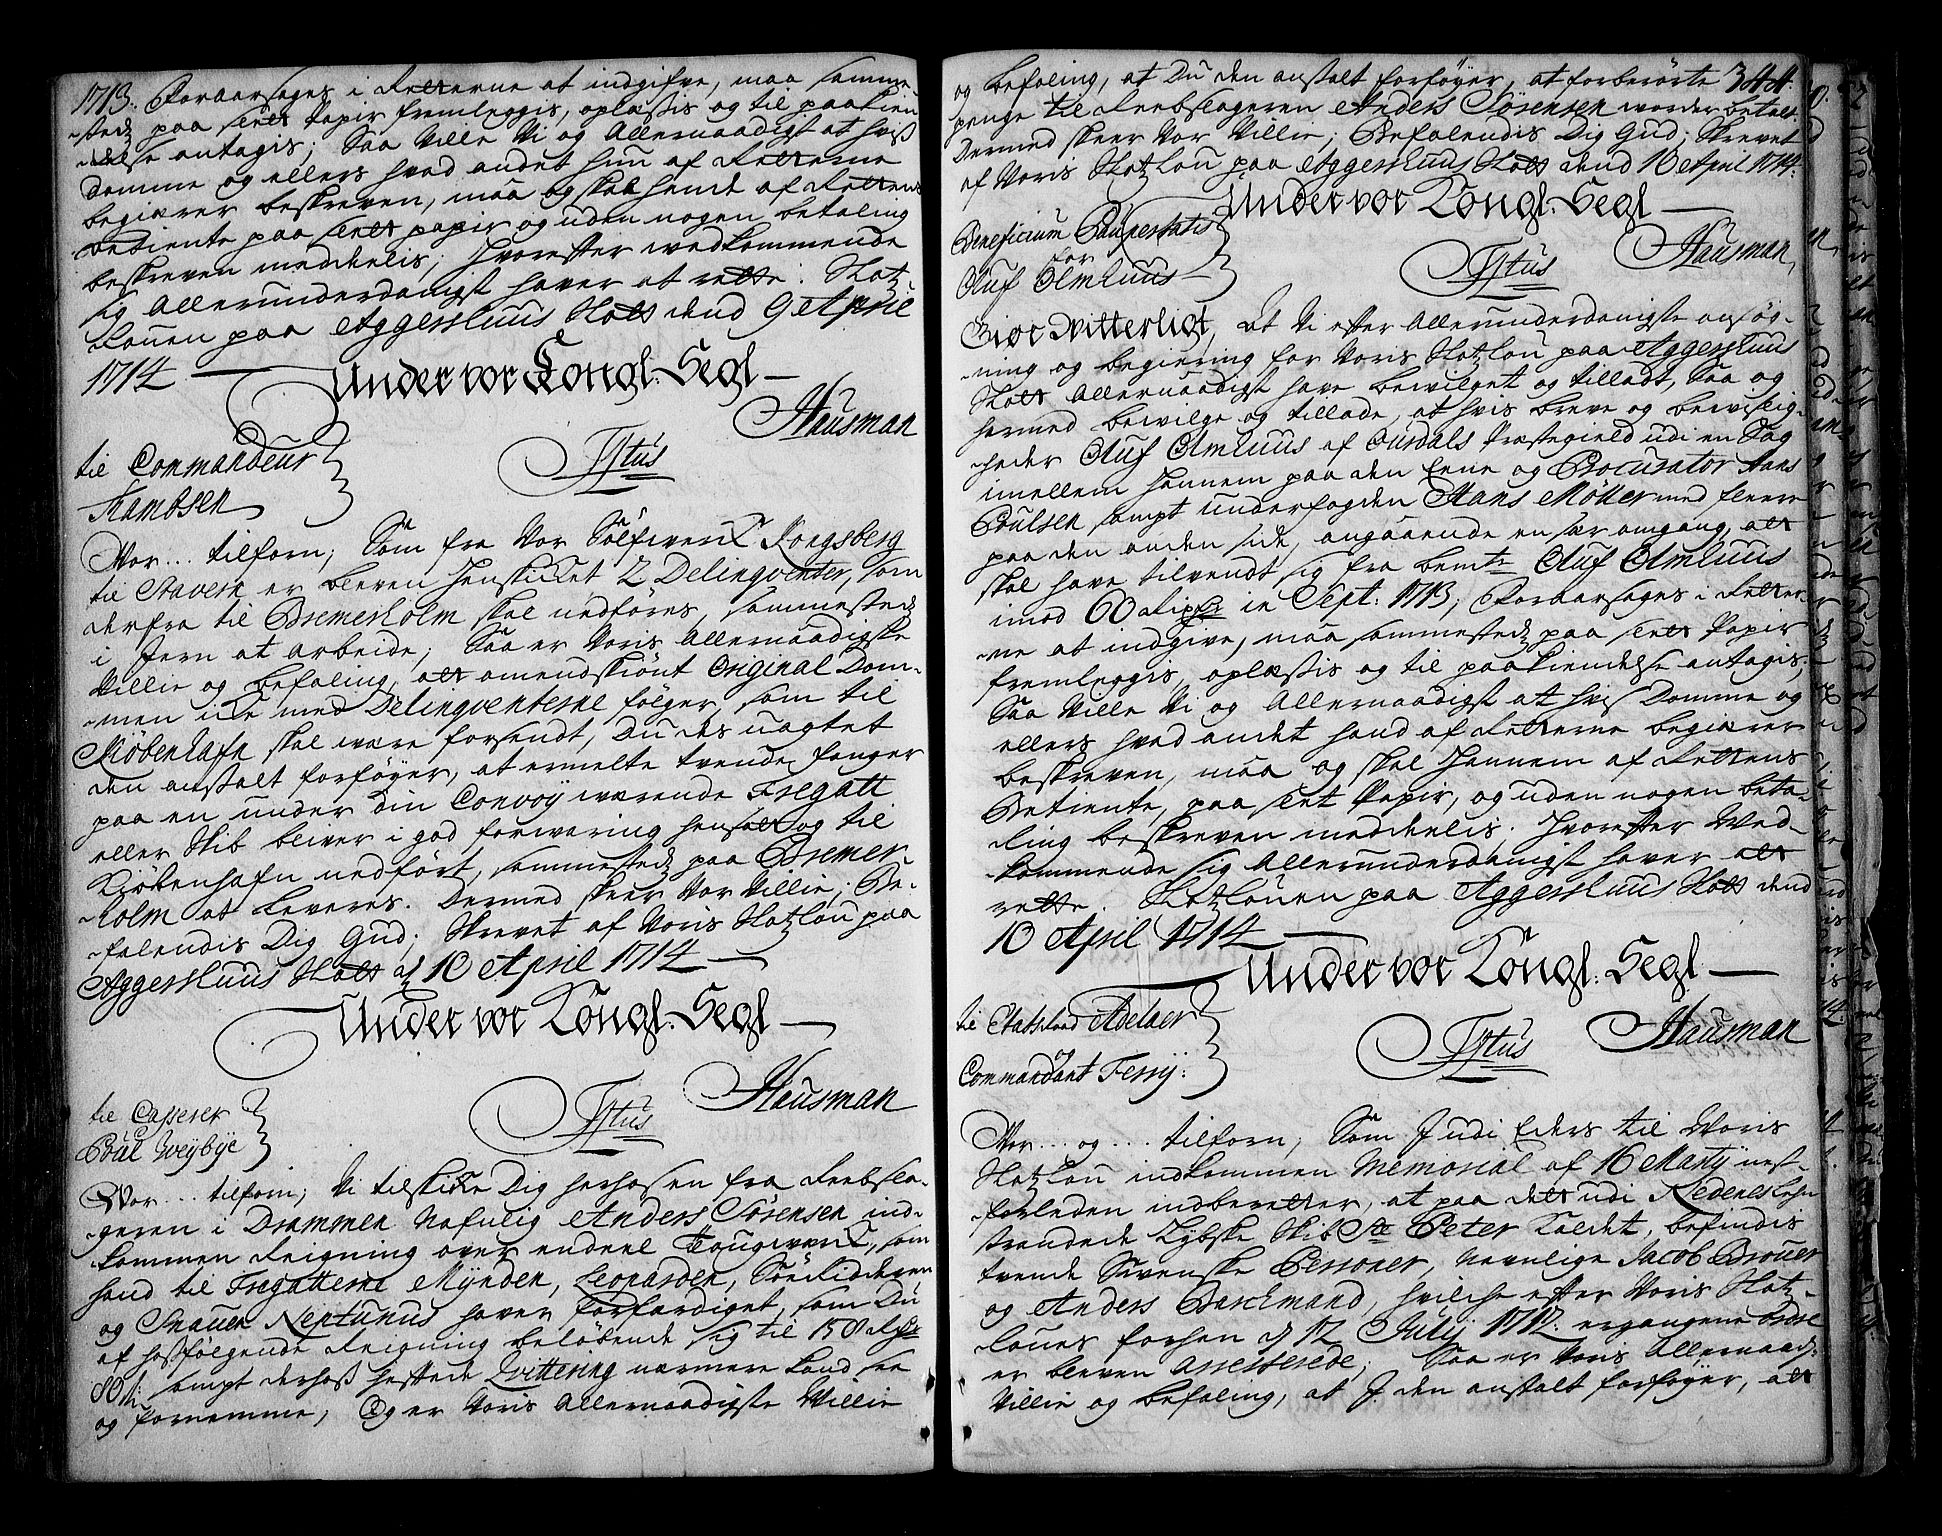 1713. Foraarsages i Retterne at indgifve, maa samme-
stedz paa slet Papir fremleggis, oplæsis og til paakien-
delse antagis; Saa Ville Vi og Allernaadigst at hviss
Domme og ellers hvad andet hun af Retterne
begierer beskreven, maa og skal hende af Rettens
betiente paa slet papir og uden nogen betaling
beskreven meddelis; Hvorefter wedkommende
sig Allerunderdanigst haver at rette. Slotz-
Louen paa Aggershuus Slott dend 9 April
1714
Under vor Kongl: Segl
Hausman
Tstus
til Commandeur
Kamosen
Vor... tilforn; Som fra Vor Sølfwerk Kongsberg
til Stavern er bleven Henskicket 2 Delinqventer, som
derfra til Bremerholm skal nedføres, sammestedz
i Jern at arbeide; Saa er Voris Allernaadigste
Villie og befaling, at omendskiønt Original Dom-
men icke med Delinqventerne følger, som til
Kiøbenhafn skal være forsendt, Du des uagtet
den anstalt forføyer, at ermelte tvende Fanger
paa en under din Convoy wærende Fregatt
eller Skib bliver i god forwaring hensatt og til
Kiøbenhafn nedført, sammestedz paa Bremer-
holm at leveres. Dermed skeer Vor Villie; Be-
falendis Dig Gud; Skrevet af Voris Slotzlou paa
Aggershuus Slott d 10 April 1714
Under vor Kongl: Segl
Hausman
Tstus
til Casserer
Poul Weybye
Vor... tilforn; Vi tilskicke Dig herhossen fra Reebsla-
geren i Drammen Nafnlig Anders Sørensen ind-
kommen Reigning over endeel Tougwerk, som
hand til Fregatterne Mynden, Leoparden, Søe Ridderen
og Snauen Neptunus haver forfærdiget, som Du
af hosfølgende Reigning beløbende sig til 150 Rdr
80 s: sampt derhos heftede Qvittering nærmere kand see
og fornemme, Og er Voris Allernaadigste Willie
og befaling, at Du den anstalt forføyer, at forberørte 344.
penge til Reebslageren Anders Sørensen worder betalt.
Dermed skeer Vor Villie; Befalendis Dig Gud; Skrevet
af Voris Slotzlou paa Aggershuus Slott dend 10 April 1714.
Under vor Kongl: Segl
Beneficium Paupertatis
for
Oluf Omluus
Hausman,
Tstus
Giør Vitterligt, At Vi efter Allerunderdanigste ansøg-
ning og begiering for Voris Slotzlou paa Aggershuus
Slott Allernaadigst have bewilget og tilladt, Saa og
hermed bewilge og tillade, at hvis breve og bewislig-
heder Oluf Omluus af Ourdals Præstegield udi en Sag
imellem Hannem paa den Eene og Procurator Hans
Poulsen sampt underfogden Hans Møller med fleere
paa den anden side, angaaende en omgang, at
skal have tilvendt sig fra bemte Oluf Omluus
imod 60 Rixdr in Sept: 1713; Foraarsages i Retter-
ne at indgive, maa sammestedz paa slet Papir
fremleggis, oplæsis og til paakiendelse antagis;
Saa Ville Vi og Allernaadigst at hvis Domme og
ellers hvad andet hand af Retterne begierer
beskreven, maa og skal Hannem af Rettens
Betiente, paa slet Papir, og uden nogen beta-
ling beskreven meddelis. Hvorefter Wed-
kommende sig Allerunderdanigst haver at
rette. Slotzlouen paa Aggershuus Slott dend
10 April 1714
Under vor Kongl: Segl
til Etatsraad Adelaer
og
Commandant Ferry:
Hausman
Tstus
Vor... og... tilforn; Som I udi Eders til Voris
Slotzlou indkommen Memorial af 16 Marty nest-
forleden indberetter, at paa dett udi Nedenes Lehn
strandede Lybske Skib St Peter kaldet, befindis
tvende Swenske Personer, Navnlige Jacob Brouer
og Anders Baschmand, hvilche efter Voris Slotz-
Loues forhen d 12 July 1712. ergangene Ordre
er bleven arresterede; Saa er Voris Allernaad:
Villie og befaling, at I den anstalt forføyer, at